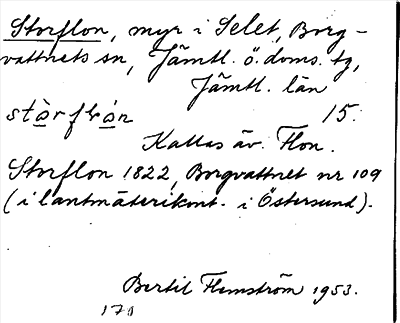 Storflon, myr i Selet, Borg-
vattnets sn, Jämtl. ö. doms. tg,
Jämtl. län
15.
Kallas äv. Flon.
Storflon 1822, Borgvattnet nr 109
(i lantmäterikont. i Östersund).
Bertil Flemström 1953.
170